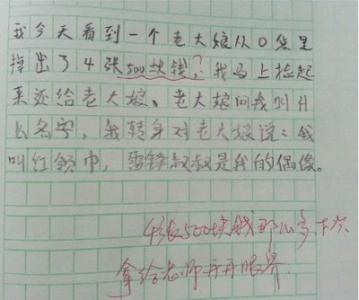 我今天看到一个老大娘从口袋里
掉出了4张500块钱？我马上捡起
来还给老大娘、老大娘问我叫什
么名字，我转身对老大娘说：我
叫红领巾，雷锋叔叔是我的偶像。
4张500块钱那么多，下次
拿给老师开开眼界.